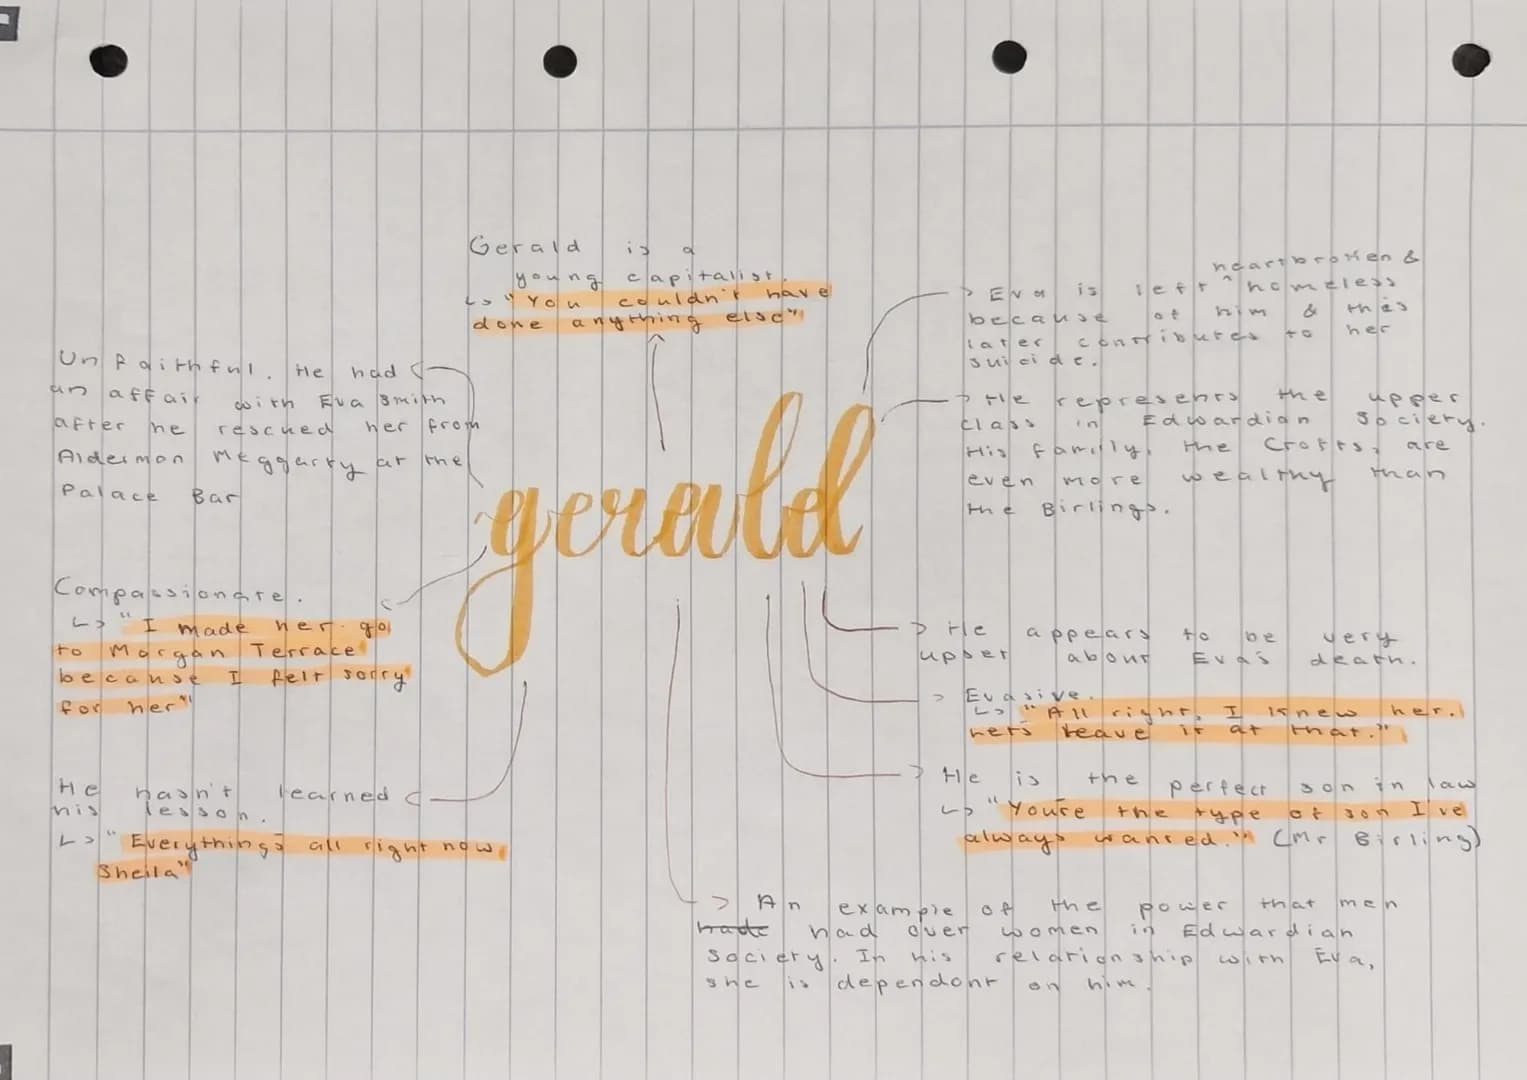 Gerald is a
young capitalist.
↳ "You couldn't have
done anything else"
heartbroken &
Eva is left ^ homeless
because of him & this
later contributes to her
suicide.
Unfaithful. He had
an affair with Eva Smith
after he rescued her from
Alderman Meggarty at the
Palace Bar
He represents the upper
class in Edwardian society.
His family, the Crofts, are
even more wealthy than
the Birlings.
gerald
Compassionate.
↳ "I made her go
to Morgan Terrace
because I felt sorry
for her"
He appears to be very
upset about Eva's death.
Evasive.
↳ "All right, I knew her.
Let's leave it at that."
He hasn't learned
his lesson.
↳ "Everything's all right now,
Sheila"
He is the perfect son in law
↳ "You're the type of son I've
always wanted." (Mr Birling)
An example of the power that men
made had over women in Edwardian
society. In his relationship with Eva,
she is dependant on him.